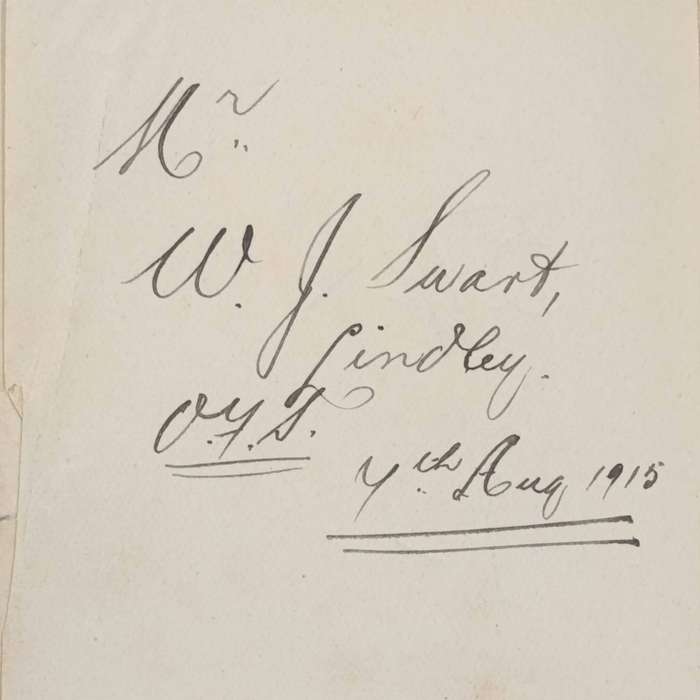 Mr.
W. J. Swart,
Lindley.
O.F.S.
7th Aug 1915